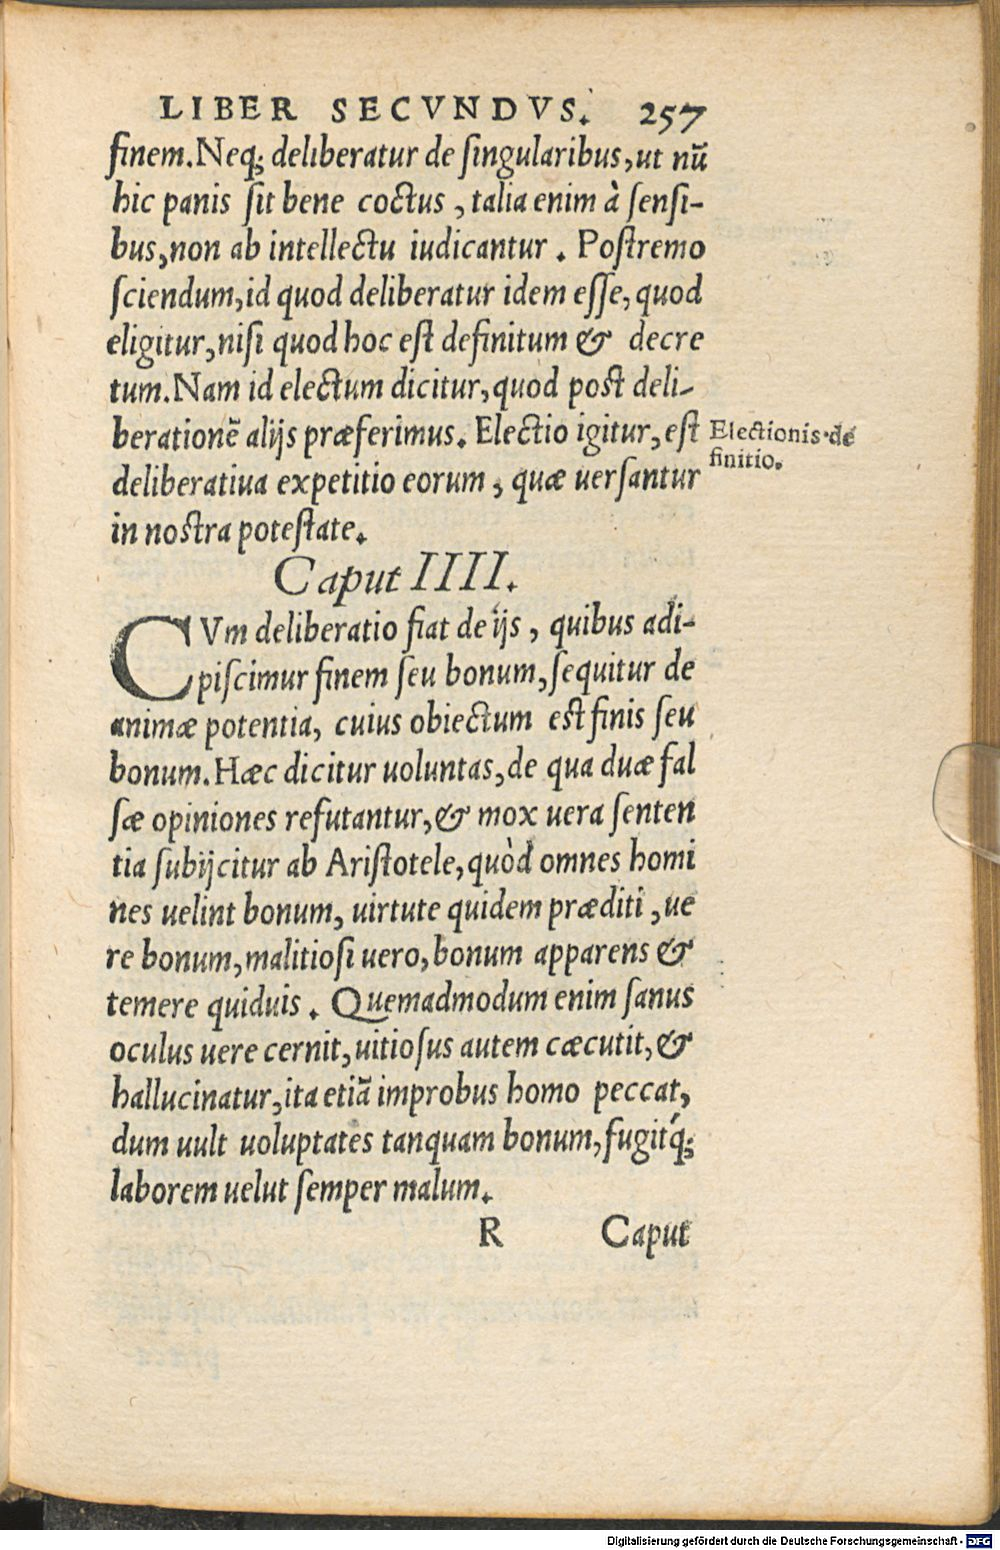 LIBER SECVNDVS. 257
finem. Neq; deliberatur de singularibus, ut nū
hic panis sit bene coctus, talia enim à sensi-
bus, non ab intellectu iudicantur. Postremo
sciendum, id quod deliberatur idem esse, quod
eligitur, nisi quod hoc est definitum & decre
tum. Nam id electum dicitur, quod post deli-
berationē alijs præferimus. Electio igitur, est
deliberatiua expetitio eorum, quæ uersantur
in nostra potestate.
Electionis de
finitio.
Caput IIII.
CVm deliberatio fiat de ijs, quibus adi-
piscimur finem seu bonum, sequitur de
animæ potentia, cuius obiectum est finis seu
bonum. Hæc dicitur uoluntas, de qua duæ fal
sæ opiniones refutantur, & mox uera senten
tia subijcitur ab Aristotele, quòd omnes homi
nes uelint bonum, uirtute quidem præditi, ue
re bonum, malitiosi uero, bonum apparens &
temere quiduis. Quemadmodum enim sanus
oculus uere cernit, uitiosus autem cæcutit, &
hallucinatur, ita etiā improbus homo peccat,
dum uult uoluptates tanquam bonum, fugitq́;
laborem uelut semper malum.
R Caput
Digitalisierung gefördert durch die Deutsche Forschungsgemeinschaft - DFG